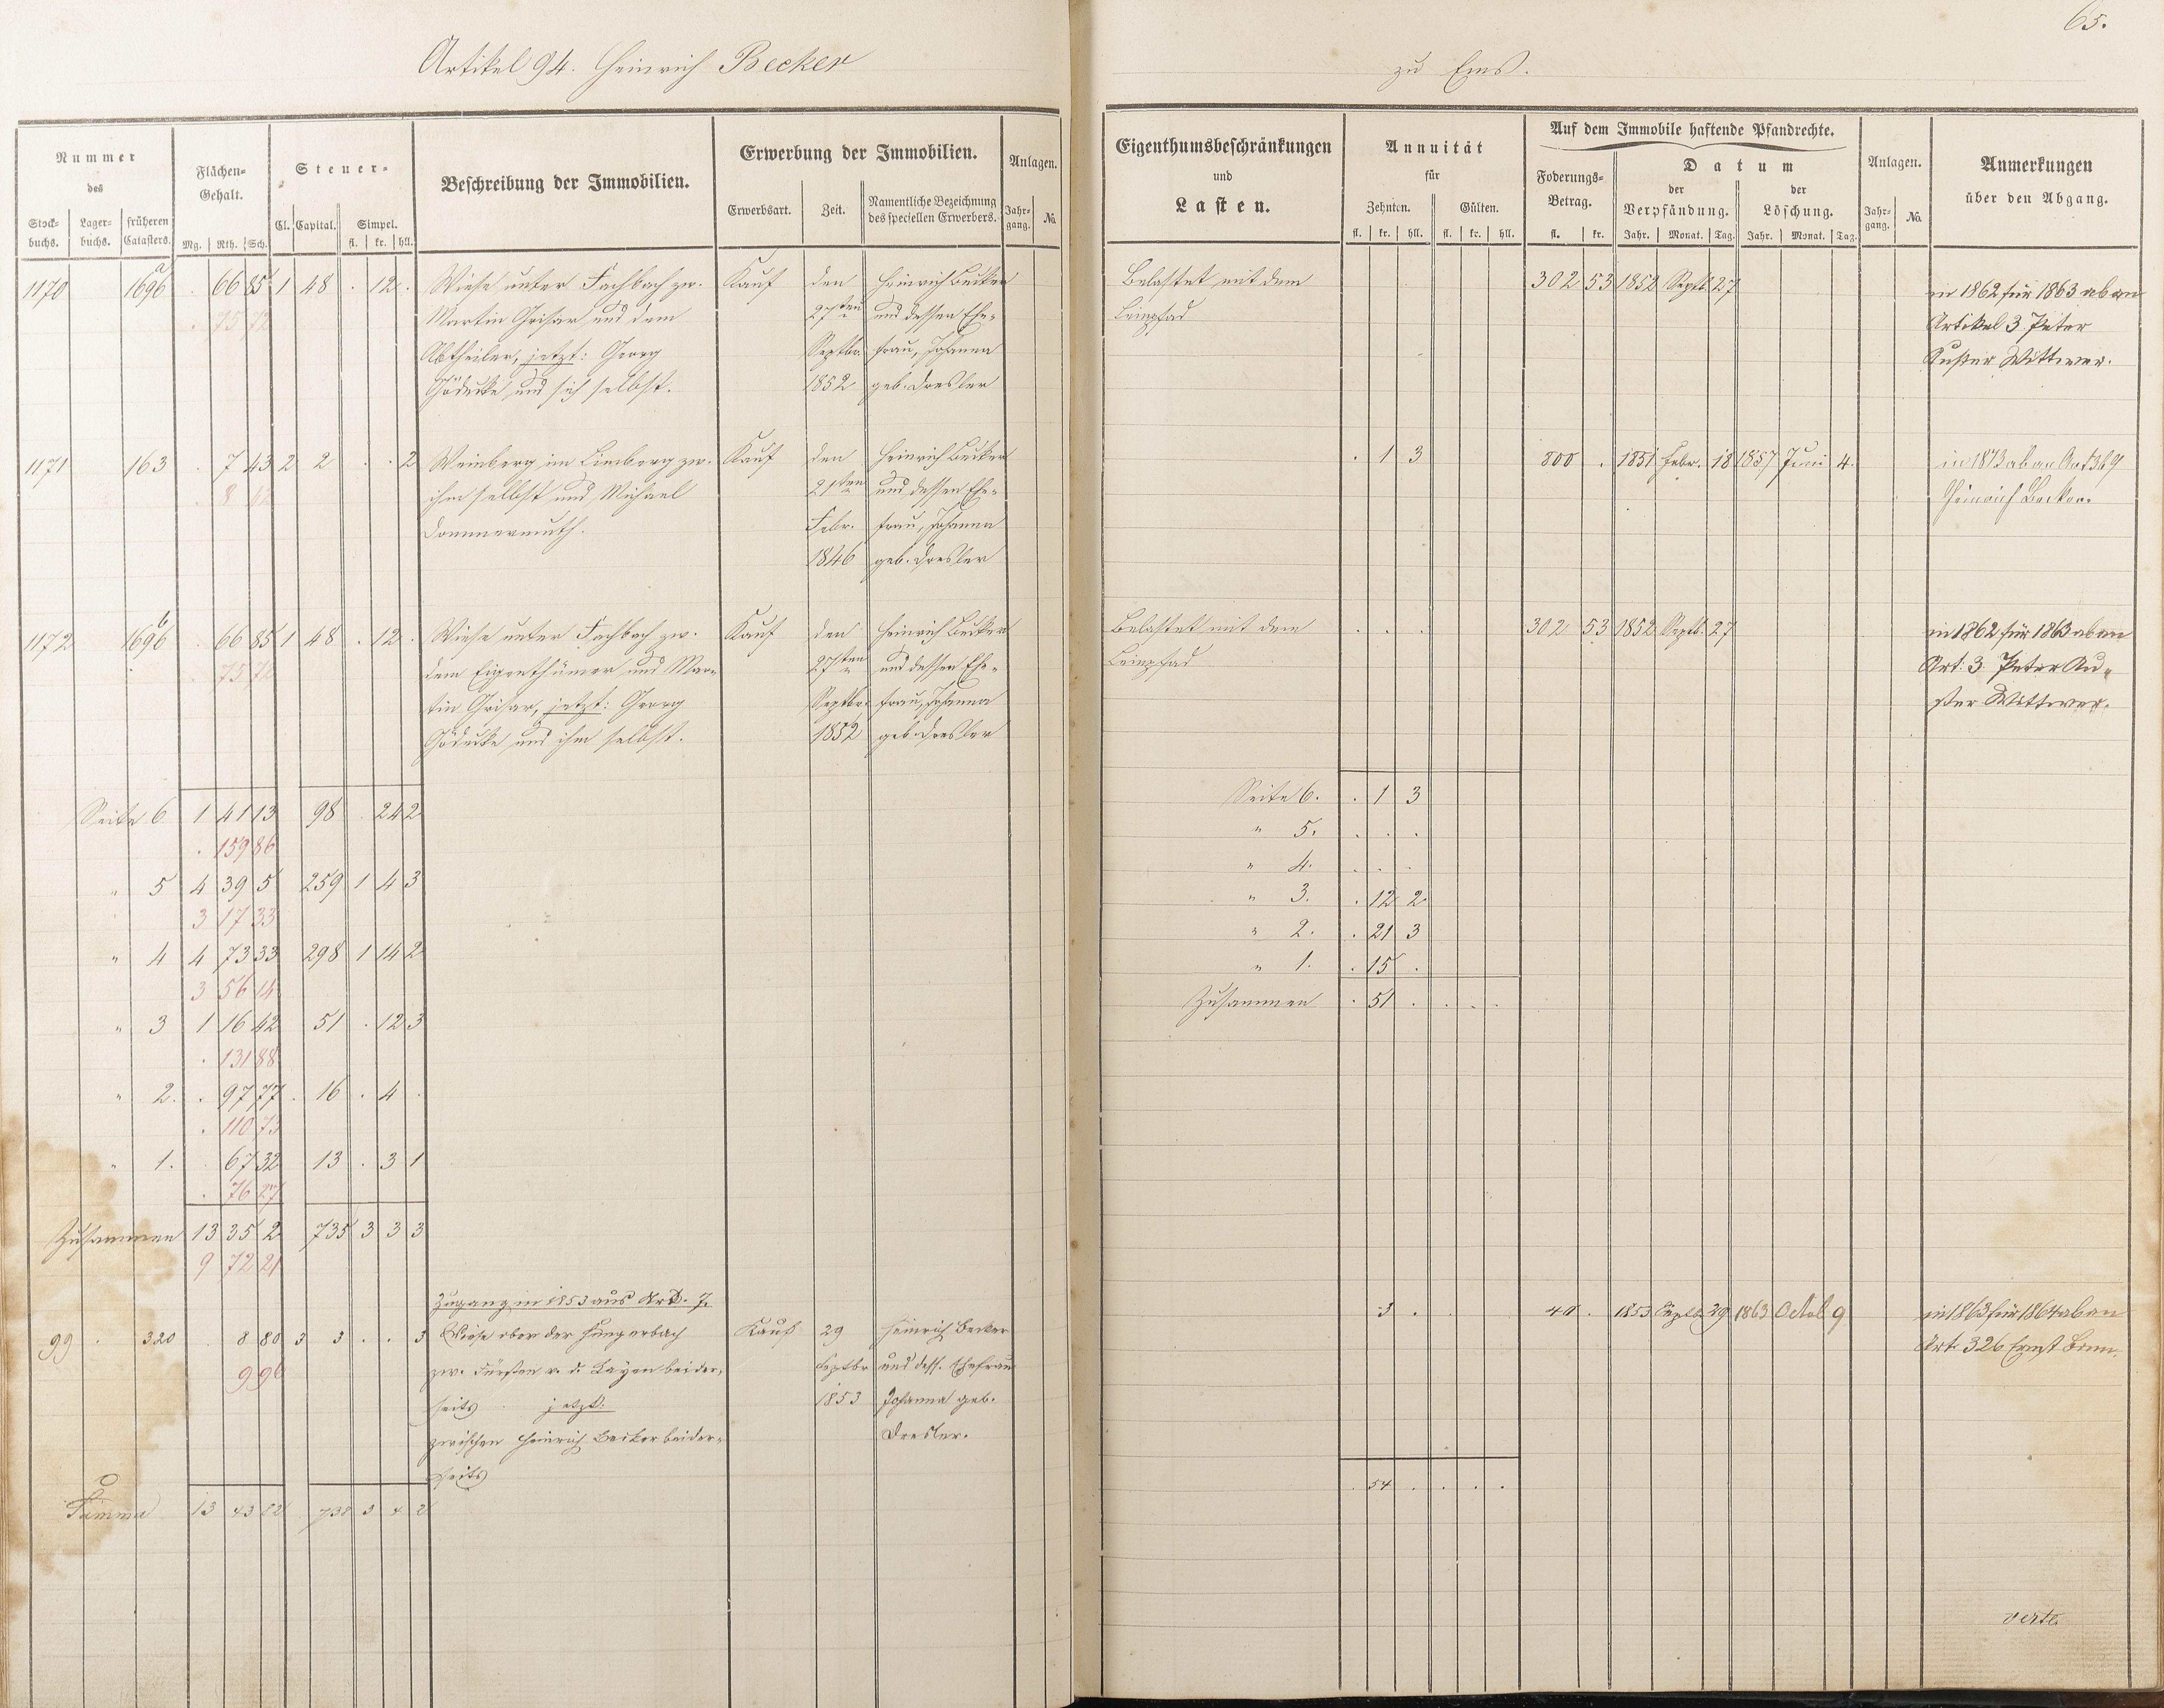 65.
Artikel 94. Heinrich Becker
zu Ems.
Nummer des
Stock-buchs. Lager-buchs. früheren Catasters.
Flächen-Gehalt.
Mg. Rth. Sch.
Steuer-
Cl. Capital. Simpel.
fl. kr. hll.
Beschreibung der Immobilien.
Erwerbung der Immobilien.
Erwerbsart. Zeit. Namentliche Bezeichnung des speciellen Erwerbers.
Anlagen.
Jahr-gang. No.
Eigenthumsbeschränkungen
und
Lasten.
Annuität
für
Zehnten. Gülten.
fl. kr. hll. fl. kr. hll.
Auf dem Immobile haftende Pfandrechte.
Foderungs-Betrag.
fl. kr.
Datum
der Verpfändung. der Löschung.
Jahr. Monat. Tag. Jahr. Monat. Tag.
Anlagen.
Jahr-gang. No.
Anmerkungen
über den Abgang.
1170 1696a . 66 85 1 48 . 12 . Wiese unter Fachbach zw. Kauf den Heinrich Becker
. 75 72 Martin Grisar und dem 27ten und dessen Ehe-
Abtheiler, jetzt: Georg Septbr. frau, Johanna
Gödecke und sich selbst. 1852 geb. Dresler
Belastet mit dem 302 53 1852 Septb. 27 in 1862 für 1863 ab an
Leinpfad Artikel 3 Peter
Kußer Wittwer.
1171 163 . 7 43 2 2 . . 2 Weinberg im Limberg zw. Kauf den Heinrich Becker
. 8 42 ihm selbst und Michael 21ten und dessen Ehe-
Dommermuth. Febr. frau, Johanna
1846 geb. Dresler
. 1 3 800 . 1851 Febr. 18 1857 Juni 4. in 1873 ab an Art 369
Heinrich Becker.
1172 1696b . 66 85 1 48 . 12 . Wiese unter Fachbach zw. Kauf den Heinrich Becker
. 75 72 dem Eigenthümer und Mar- 27ten und dessen Ehe-
tin Grisar, jetzt: Georg Septbr. frau, Johanna
Gödecke und ihm selbst. 1852 geb. Dresler
Belastet mit dem . . . 302 53 1852 Septb. 27 in 1862 für 1863 ab an
Leinpfad Art. 3 Peter Ku-
ßer Wittwer.
Seite 6 1 41 13 98 . 24 2
. 159 86
" 5 4 39 5 259 1 4 3
3 17 33
" 4 4 73 33 298 1 14 2
3 56 14
" 3 1 16 42 51 . 12 3
. 131 88
" 2. . 97 77 . 16 . 4 .
. 110 73
" 1. . 67 32 13 . 3 1
. 76 27
Zusammen 13 35 2 735 3 3 3
9 72 21
Seite 6. . 1 3
" 5. . . .
" 4. . . .
" 3. . 12 2
" 2. . 21 3
" 1. . 15 .
Zusammen . 51 . . . .
Zugang in 1853 aus Art. 7.
99 . 320 . 8 80 3 3 . . 3 Wiese ober der Hungerbach Kauf 29 Heinrich Becker
9 96 zw. Fürsten v. d. Layen beider- Septbr und dess. Ehefrau
seits jetzt: 1853 Johanna geb.
zwischen Heinrich Becker beider- Dresler.
seits
. 3 . 1853 Septb. 29 1863 Octob 9 in 1863 für 1864 ab an
Art. 326 Ernst
Summa 13 43 82 738 3 4 2
. 54 . . . .
verte